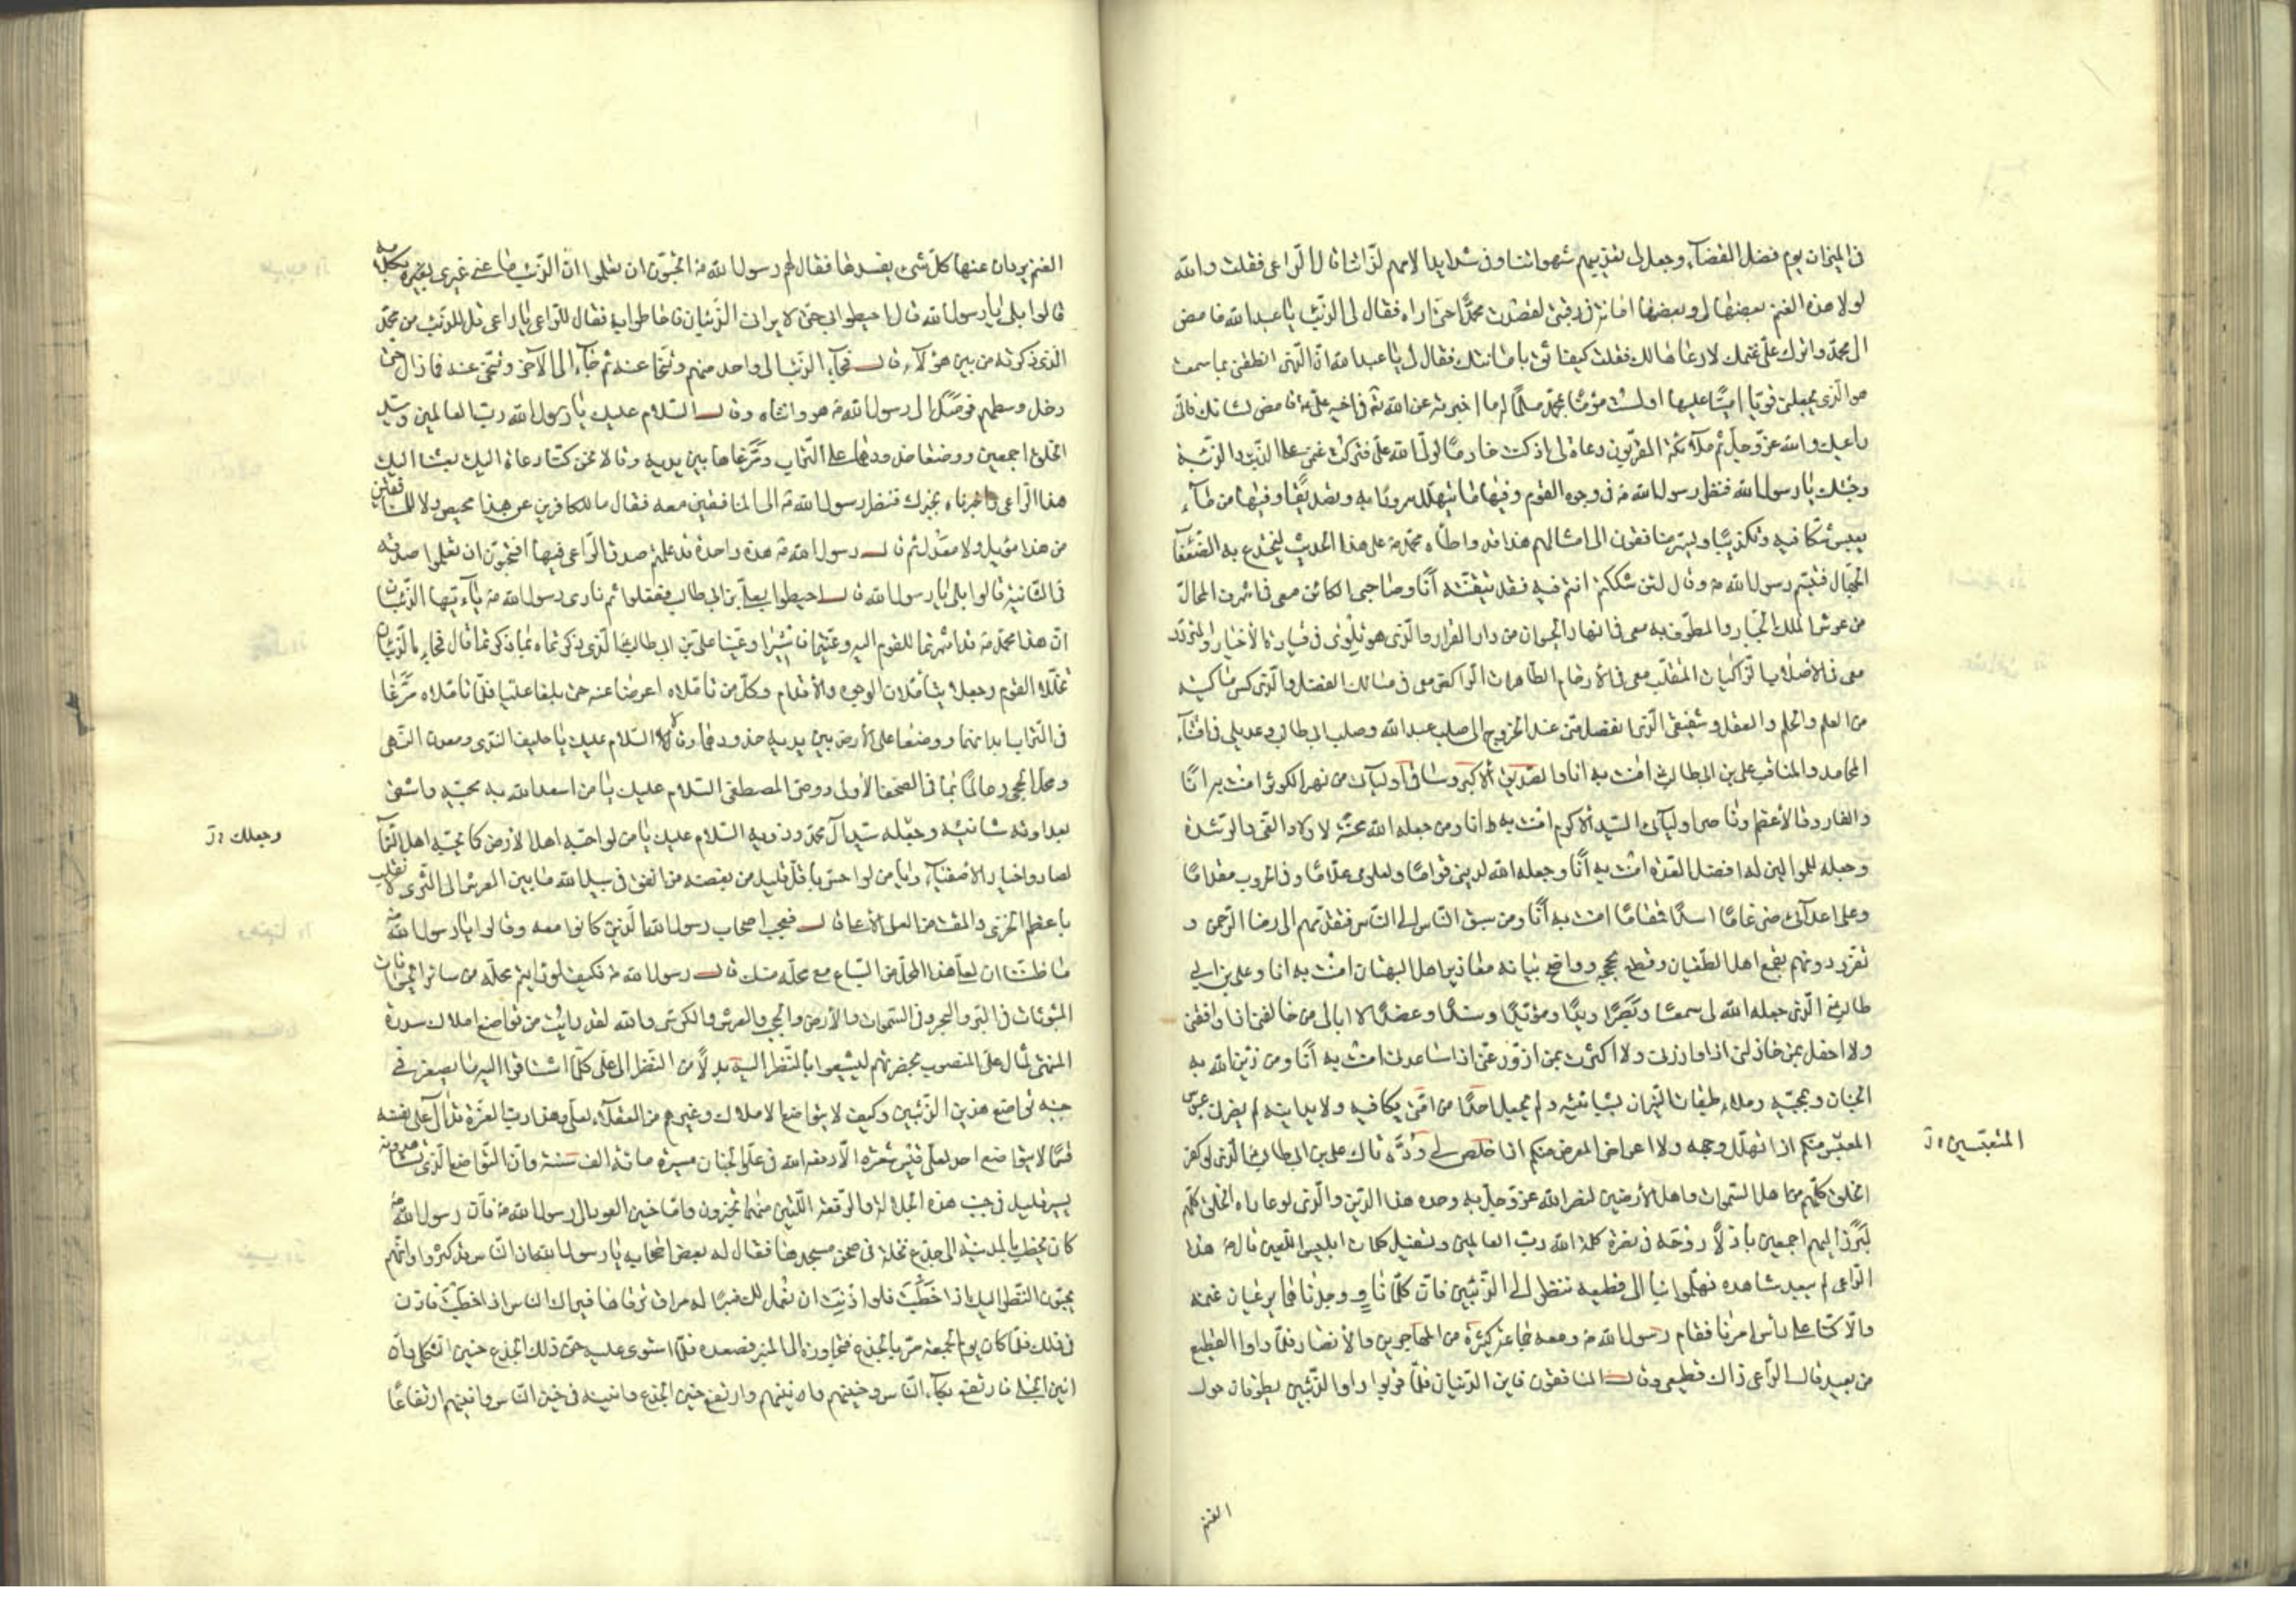 فى الميزان يوم فصل القضاء وجعل فى تعذيبهم شهواتنا وفى شدايد الامهم لذاتنا قال الراعى فقلت والله
لولا هذه الغنم بعضها لى وبعضها امانة فى رقبتى لقصدت محمدا حتى اراه فقال لى الذئب يا عبد الله فامض
الى محمد واترك على غنمك لارعاها لك فقلت كيف اثق بامانتك فقال لى يا عبد الله ان الذى انطقنى بما سمعت
هو الذى يجعلنى قويا امينا عليها اولست مؤمنا بمحمد مسلما له ما اخبر به عن الله فى اخيه على فامض لشانك فانى
راعيك والله عز وجل ثم ملائكته المقربون رعاة لى اذ كنت خادما لولى الله على فتركت غنمى على الذئب والذئبة
وجئتك يا رسول الله فنظر رسول الله ص فى وجوه القوم وفيها ما يتهلل سرورا به وتصديقا وفيها من ظاء
يعبس شكا فيه وتكذيبا ويسر منافقون الى امثالهم هذا قد واطاه محمد ص على هذا الحديث ليختدع به الضعفاء
الجهال فتبسم رسول الله ص وقال لئن شككتم انتم فيه فقد تيقنته انا وصاحبى الكائن معى فى اشرف المحال
من عرش الملك الجبار والمطوف به معى فى انهار الحيوان من دار القرار والذى هو تلوى فى قيادة الاخيار والمتردد
معى فى الاصلاب الزاكيات المتقلب معى فى الارحام الطاهرات الراكض معى فى مسالك الفضل والذى كسى ما كسيته
من العلم والحلم والعقل وشقيقى الذى انفصل منى عند الخروج الى صلب عبد الله وصلب ابى طالب وعديلى فى اقتناء
المحامد والمناقب على بن ابى طالب امنت به انا والصديق الاكبر وساقى اوليائى من نهر الكوثر امنت به انا
والفاروق الاعظم وناصر اوليائى السيد الاكرم امنت به انا ومن جعله الله محنة لاولاد الغى والرشدة
وجعله للموالين له افضل العدة امنت به انا وجعله الله لدينى قواما ولعلومى علاما وفى الحروب مقداما
وعلى اعدائى ضرغاما اسدا قمقاما امنت به انا ومن سبق الناس الى الناس فتقدمهم الى رضا الرحمن و
تفرد دونهم بقمع اهل الطغيان وقطع بحججه وواضح بيانه معاذير اهل البهتان امنت به انا وعلى بن ابى
طالب الذى جعله الله لى سمعا وبصرا ويدا ومؤيدا وسندا وعضدا لا ابالى من خالفنى اذا وافقنى
ولا احفل بمن خاذلنى اذا وازرنى ولا اكترث بمن ازور عنى اذا ساعدنى امنت به انا ومن زين الله به
الجنان وبمحبيه وملاء طبقات النيران بشانئيه ولم يجعل احدا من امتى يكافيه ولا يدانيه لم يضرنى عبوس
المعبس منكم اذا تهلل وجهه ولا اعراض المعرض منكم اذا خلص لى وده ذاك على بن ابى طالب الذى لو كفر
الخلق كلهم من اهل السموات واهل الارضين لنصر الله عز وجل به وحده هذا الدين والذى لو عاداه الخلق كلهم
لبرز اليهم اجمعين باذلا روحه فى نصرة كلمة الله رب العالمين وتسفيل كلمات ابليس اللعين قال هذا
الراعى لم يبعد شاهده فهلموا بنا الى قطيعه ننظر الى الذئبين فان كلمانا ووجدناهما يرعيان غنمه
والا كنا على راس امرنا فقام رسول الله ص ومعه جماعة كثيرة من المهاجرين والانصار فلما راوا القطيع
من بعيد قال الراعى ذاك قطيعى وقال المنافقون فاين الذئبان فلما قربوا راوا الذئبين يطوفان حول
المتعبسين
الغنم
الغنم يردان عنها كل شىء يفسدها فقال لهم رسول الله ص اتحبون ان تعلموا ان الذئب ما عنى غيرى بغيره بكلامه
قالوا بلى يا رسول الله قال احيطوا بى حتى لا يرانى الذئبان فاحاطوا به فقال للراعى يا راعى قل للذئب من محمد
الذى ذكرته من بين هؤلاء قال فجاء الذئب الى واحد منهم وتنحا عنه ثم جاء الى الاخر وتنحى عنه فما زال حتى
دخل وسطهم فوصل الى رسول الله ص هو وانثاه وقال السلام عليك يا رسول الله رب العالمين وسيد
الخلق اجمعين ووضعا خدودهما على التراب ومرغاها بين يديه وقالا نحن كنا دعاة اليك بعثنا اليك
هذا الراعى واخبرناه بخبرك فنظر رسول الله ص الى المنافقين معه فقال ما للكافرين عن هذا محيص ولا للمنافقين
من هذا موئل ولا معدل ثم قال رسول الله ص هذه واحدة قد علمتم صدق الراعى فيها افتحبون ان تعلموا صدقه
فى الثانية قالوا بلى يا رسول الله قال احيطوا بعلى بن ابى طالب ففعلوا ثم نادى رسول الله ص يا ايها الذئبان
ان هذا محمد ص قد اشرتما للقوم اليه وعينتما فاشيرا وعينا على بن ابى طالب الذى ذكرتماه بما ذكرتما قال فجاء الذئبان
تخللا القوم وجعلا يتاملان الوجوه والاقدام وكل من تاملاه اعرضا عنه حتى بلغا عليا فلما تاملاه مرغا
فى التراب ابدانهما ووضعا على الارض بين يديه خدودهما وقالا السلام عليك يا حليف الندى ومعدن النهى
ومحل الحجى وعالما بما فى الصحف الاولى ووصى المصطفى السلام عليك يا من اسعد الله به محبيه واشقى
بعداوته شانئيه وجعله سيد ال محمد وذويه السلام عليك يا من لو احبه اهل الارض كما يحبه اهل السماء
لصاروا خيار الاصفياء ويا من لو احس باقل قليل من بغضه من انفق فى سبيل الله ما بين العرش الى الثرى لانقلب
باعظم الخزى والمقت من العلى الاعلى قال فعجب اصحاب رسول الله الذين كانوا معه وقالوا يا رسول الله
ما ظننا ان لعلى هذا المحل من السباع مع محله منك قال رسول الله ص فكيف لو رايتم محله من سائر الحيوانات
المبثوثات فى البر والبحر وفى السموات والارض والحجب والعرش والكرسى والله لقد رايت من تواضع املاك سدرة
المنتهى لمثال على المنصوب بحضرتهم ليشبعوا بالنظر اليه بدلا من النظر الى على كلما اشتاقوا اليه ما يصغر فى
جنبه تواضع هذين الذئبين وكيف لا يتواضع الاملاك وغيرهم من العقلاء لعلى وهذا رب العزة قد ال على نفسه
قسما لا يتواضع احد لعلى قيس شعرة الا رفعه الله فى علو الجنان مسيرة مائة الف سنة وان التواضع الذى تشاهدونه
يسير قليل فى جنب هذه الجلالة والرفعة اللتين عنهما تخبرون واما حنين العود الى رسول الله ص فان رسول الله ص
كان يخطب بالمدينة الى جذع نخلة فى صحن مسجدها فقال له بعض اصحابه يا رسول الله ان الناس قد كثروا وانهم
يحبون النظر اليك اذا خطبت فلو اذنت ان نعمل لك منبرا له مراق ترقاها فيراك الناس اذا خطبت فاذن
فى ذلك فلما كان يوم الجمعة مر بالجذع فتجاوزه الى المنبر فصعده فلما استوى عليه حن ذلك الجذع حنين الثكلى وان
انين الحبلى فارتفع بكاء الناس وحنينهم وانينهم وارتفع حنين الجذع وانينه فى حنين الناس وانينهم ارتفاعا
وجعلك